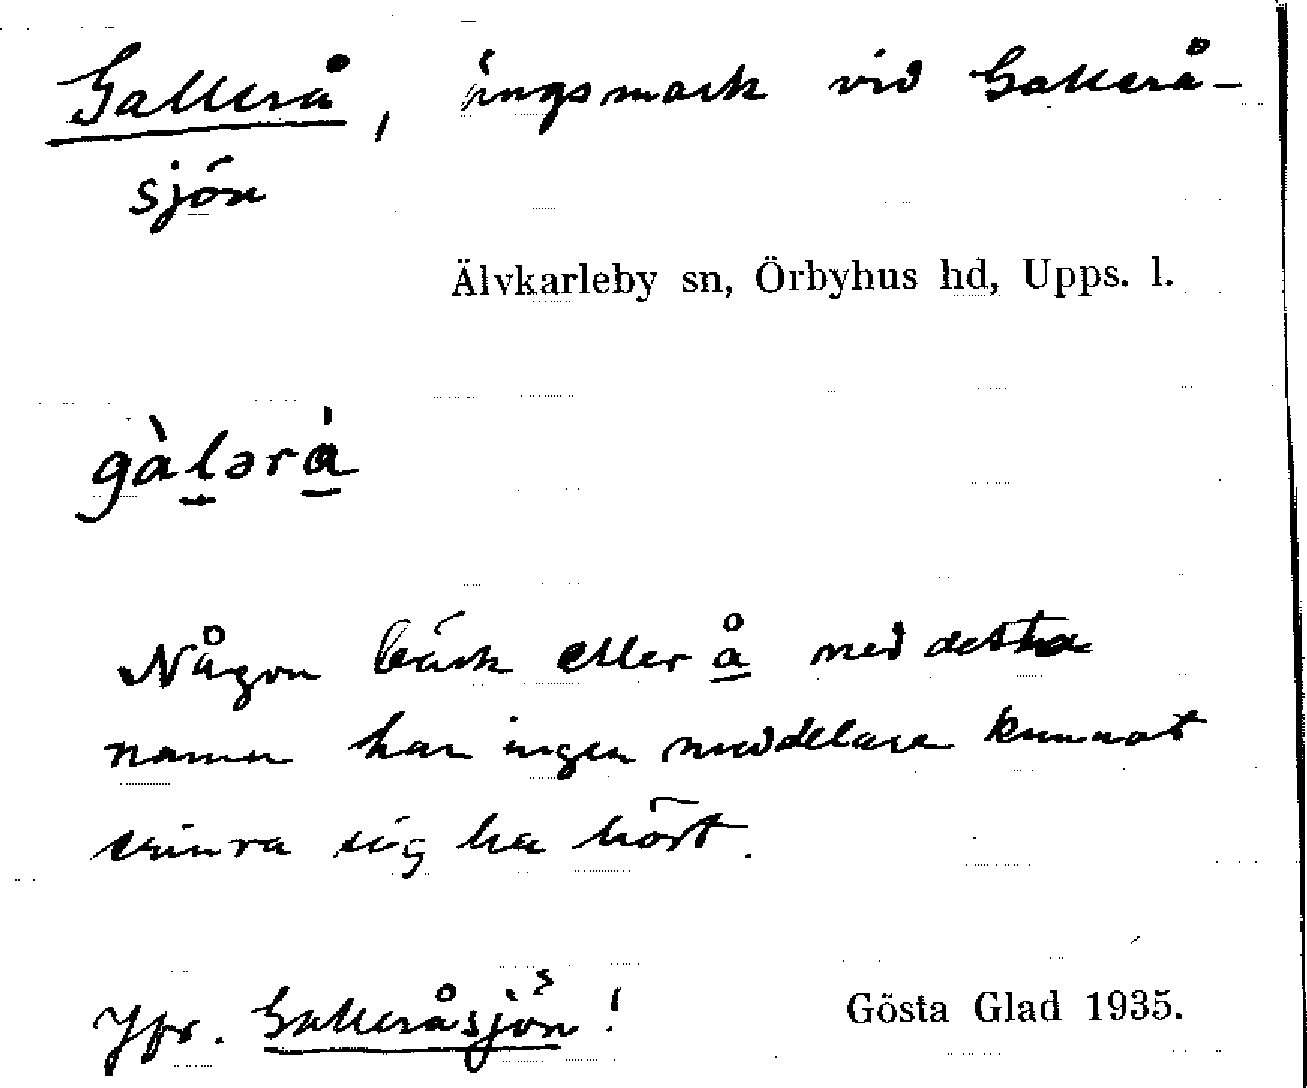 Gallerå, ängsmark vid Gallerå-
sjön
Älvkarleby sn, Örbyhus hd, Upps. l.
gàl̠ərá̠
Någon bäck eller å med detta
namn har ingen meddelare kunnat
erinra sig ha hört.
Jfr. Galleråsjön!
Gösta Glad 1935.